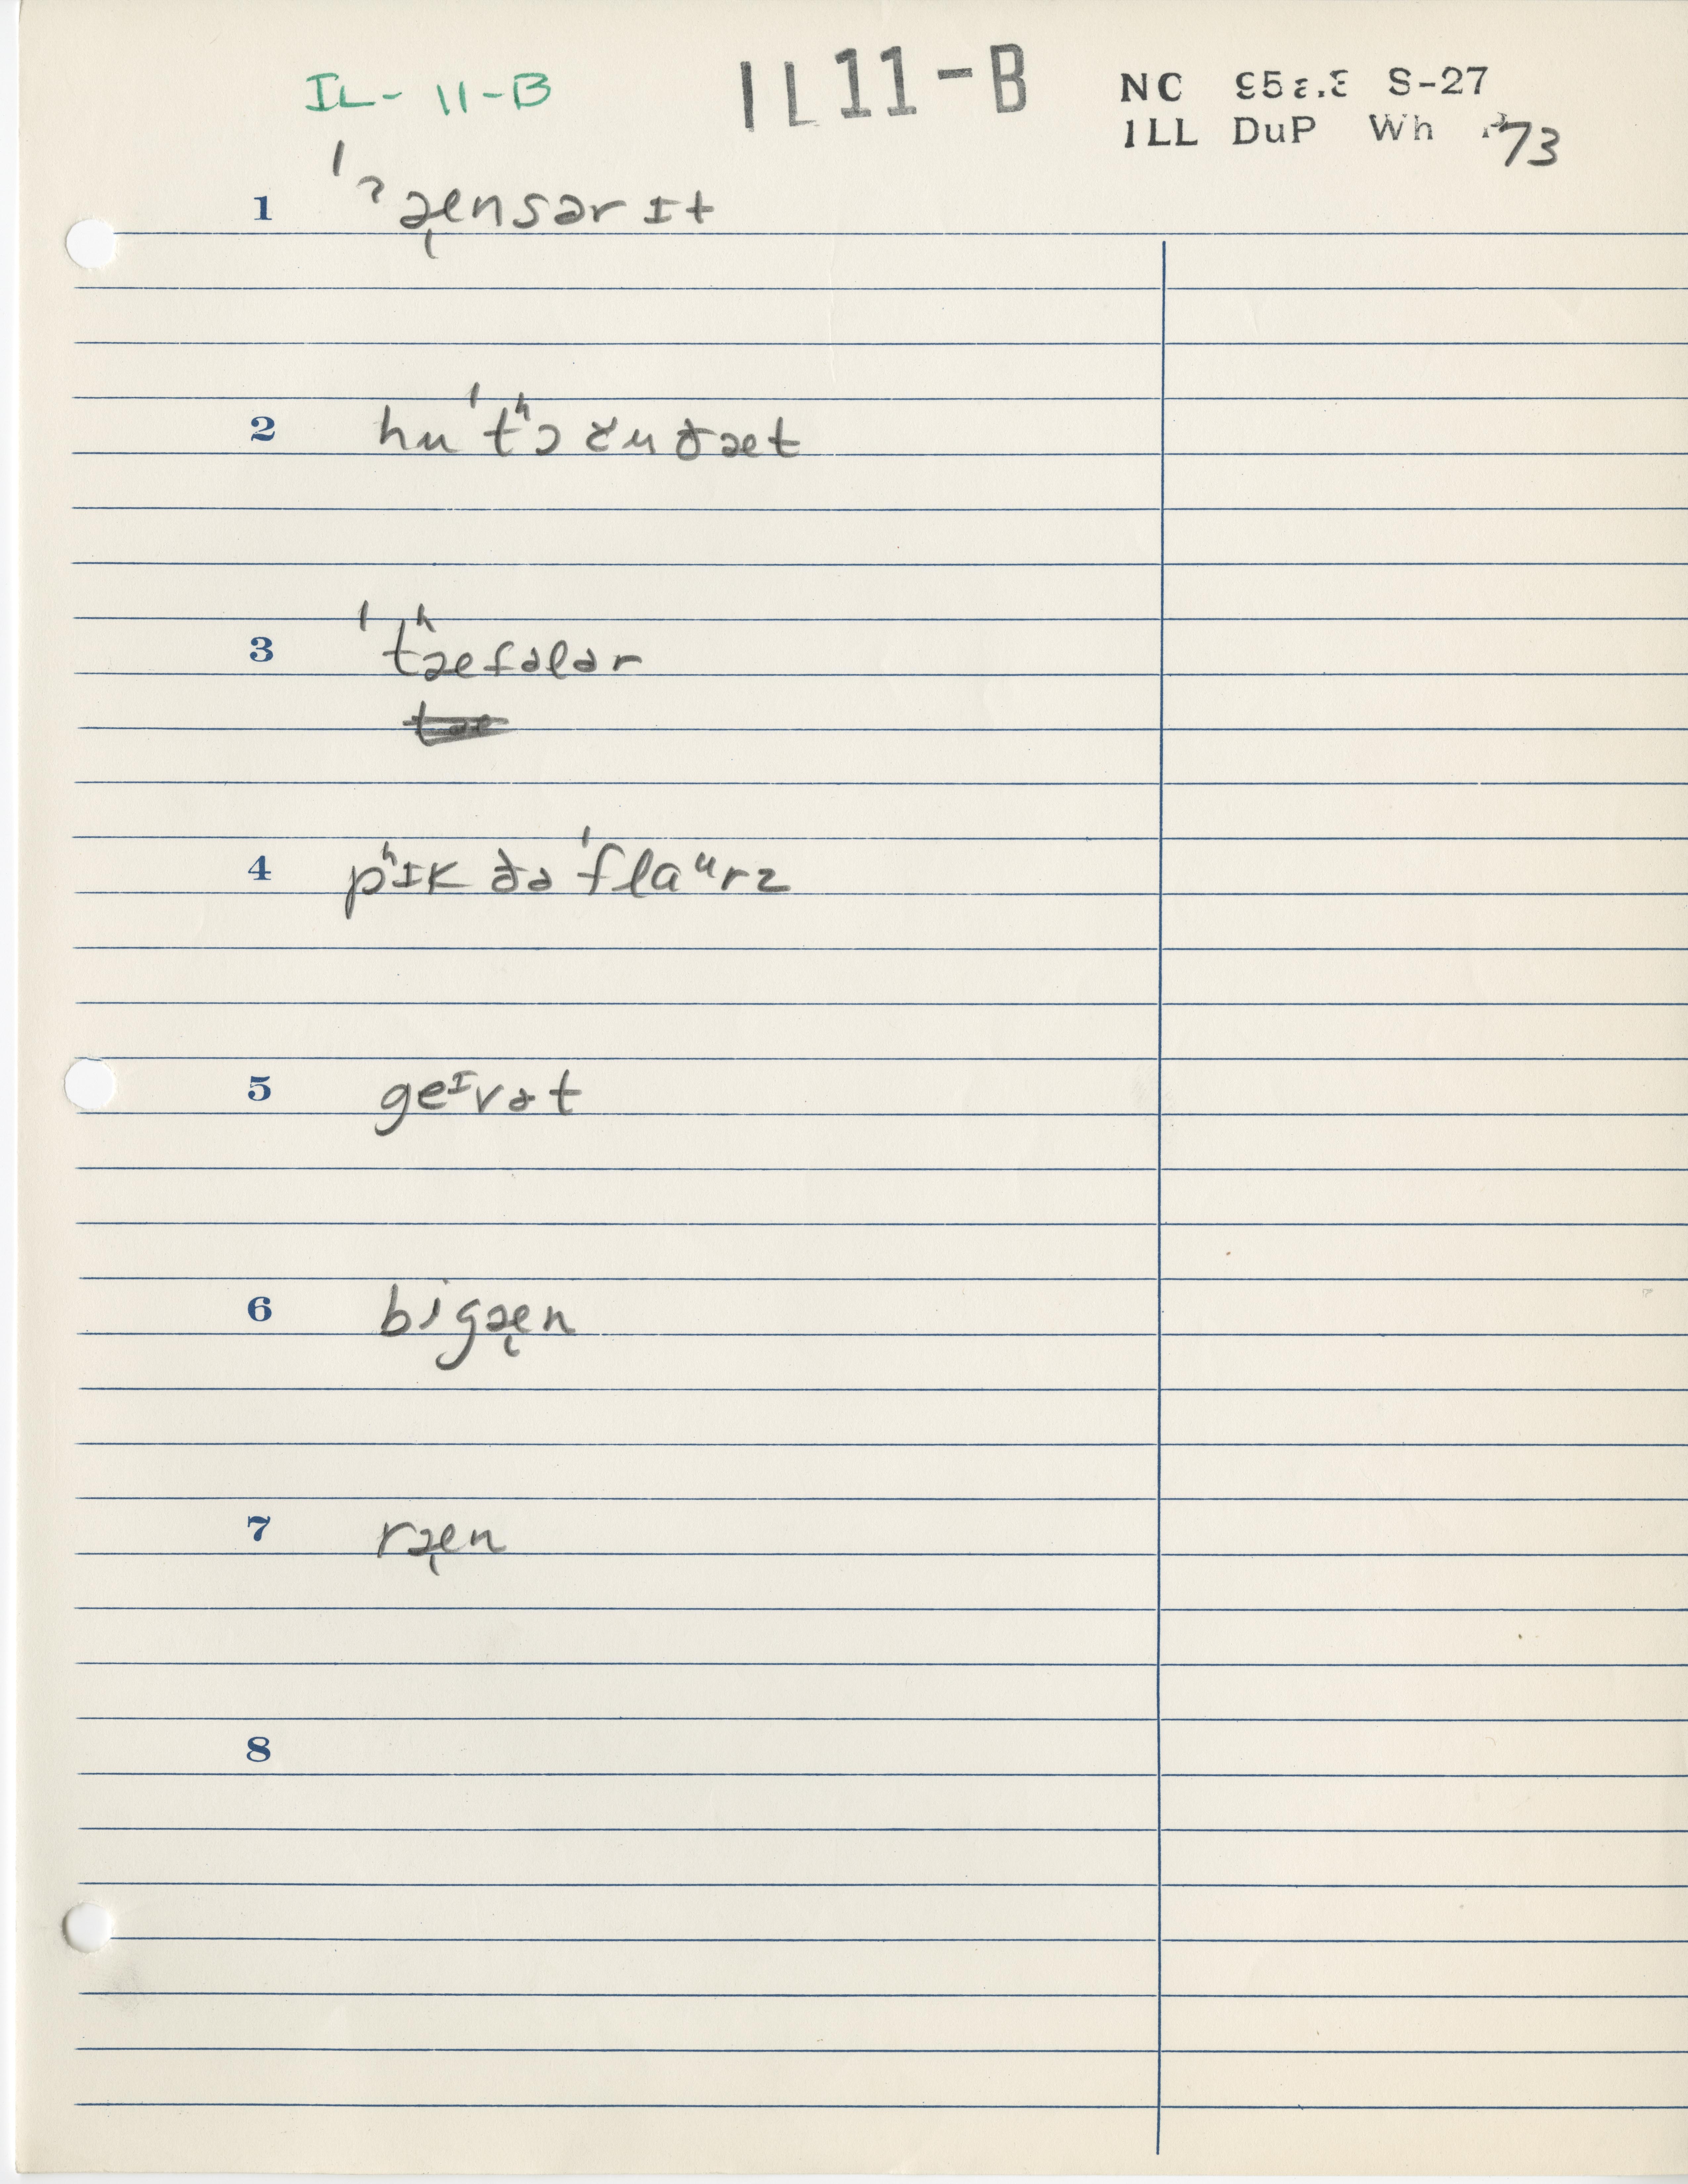 IL-11-B
IL11-B
NC S-27
ILL DuP Wh 73
1 ˈˀæ̨nsərɪt
2 huˈtʰɔɤuðæt
3 ˈtʰæfələr
4 pʰɪk ðəˈflaᵘrz
5 geᶦvət
6 bigæ̨n
7 ræ̨n
8